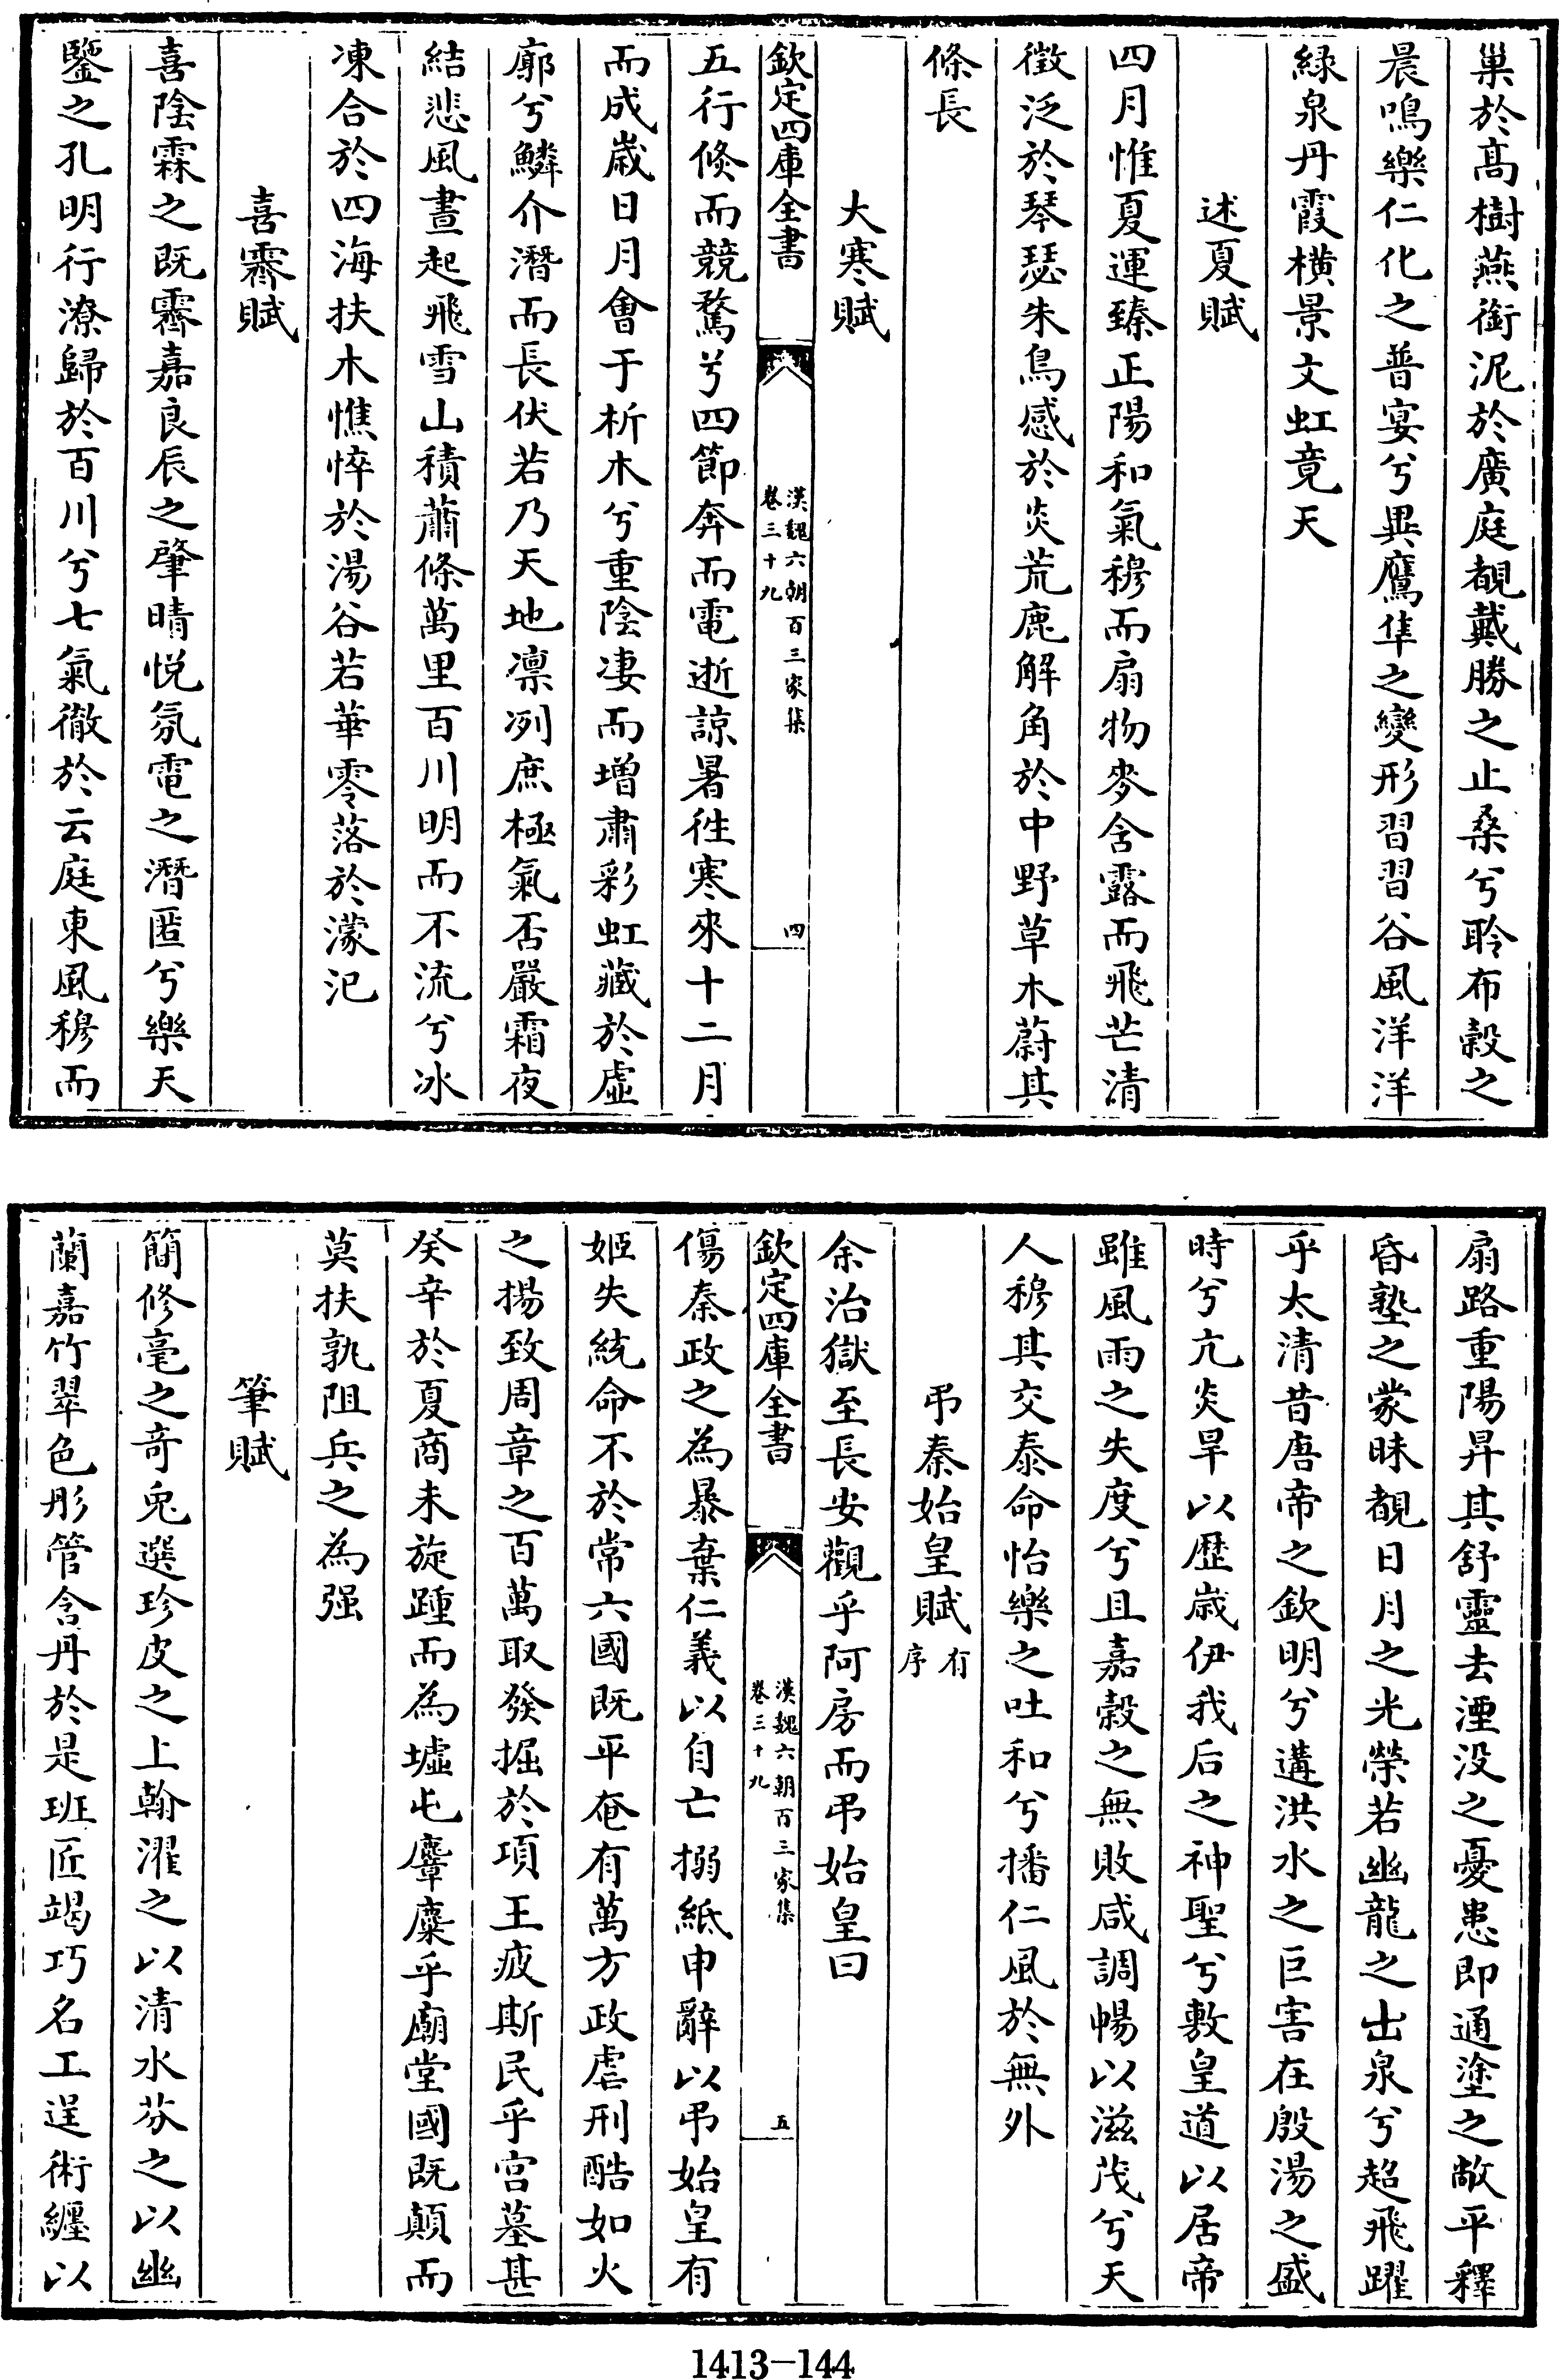 巢於髙樹燕銜泥於廣庭覩戴勝之止桑兮聆布穀之
晨鳴樂仁化之普宴兮異鷹隼之變形習習谷風洋洋
緑泉丹霞横景文虹竟天
述夏賦
四月惟夏運臻正陽和氣穆而扇物麥含露而飛芒清
徵泛於琴瑟朱鳥感於炎荒鹿解角於中野草木蔚其
條長
大寒賦
欽定四庫全書
漢魏六朝百三家集
卷三十九
四
五行倐而競騖兮四節奔而電逝諒暑徃寒來十二月
而成嵗日月會于析木兮重陰凄而増肅彩虹藏於虚
廓兮鱗介潛而長伏若乃天地凛冽庶極氣否嚴霜夜
結悲風晝起飛雪山積蕭條萬里百川明而不流兮冰
凍合於四海扶木憔悴於湯谷若華零落於濛汜
喜霽賦
喜陰霖之既霽嘉良辰之肇晴悦氛電之潛匿兮樂天
鑒之孔明行潦歸於百川兮七氣徹於云庭東風穆而
扇路重陽昇其舒靈去湮没之憂患即通塗之敞平釋
昏墊之蒙昧覩日月之光榮若幽龍之出泉兮超飛躍
乎太清昔唐帝之欽明兮遘洪水之巨害在殷湯之盛
時兮亢炎旱以歴歳伊我后之神聖兮敷皇道以居帝
雖風雨之失度兮且嘉穀之無敗咸調暢以滋茂兮天
人穆其交泰命怡樂之吐和兮播仁風於無外
弔秦始皇賦有序
余治獄至長安觀乎阿房而弔始皇曰
欽定四庫全書
漢魏六朝百三家集
卷三十九
五
傷秦政之為暴棄仁義以自亡搦紙申辭以弔始皇有
姬失統命不於常六國既平奄有萬方政虐刑酷如火
之揚致周章之百萬取發掘於項王疲斯民乎宫墓甚
癸辛於夏商未旋踵而為墟屯麏麋乎廟堂國既顛而
莫扶孰阻兵之為强
筆賦
簡修毫之奇兎選珍皮之上翰濯之以清水芬之以幽
蘭嘉竹翠色彤管含丹於是班匠竭巧名工逞術纒以
1413-144